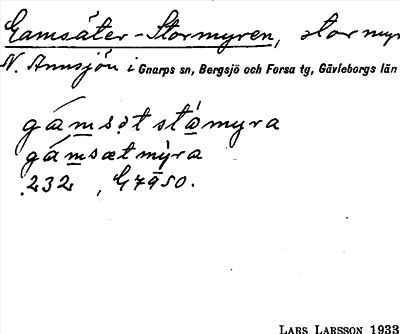 Gamsäter-Stormyren, stor myr
N. Annsjön i Gnarps sn, Bergsjö och Forsa tg, Gävleborgs län
gámsət stǻmyra
gámsætmỳra
232, G7950.
LARS LARSSON 1933